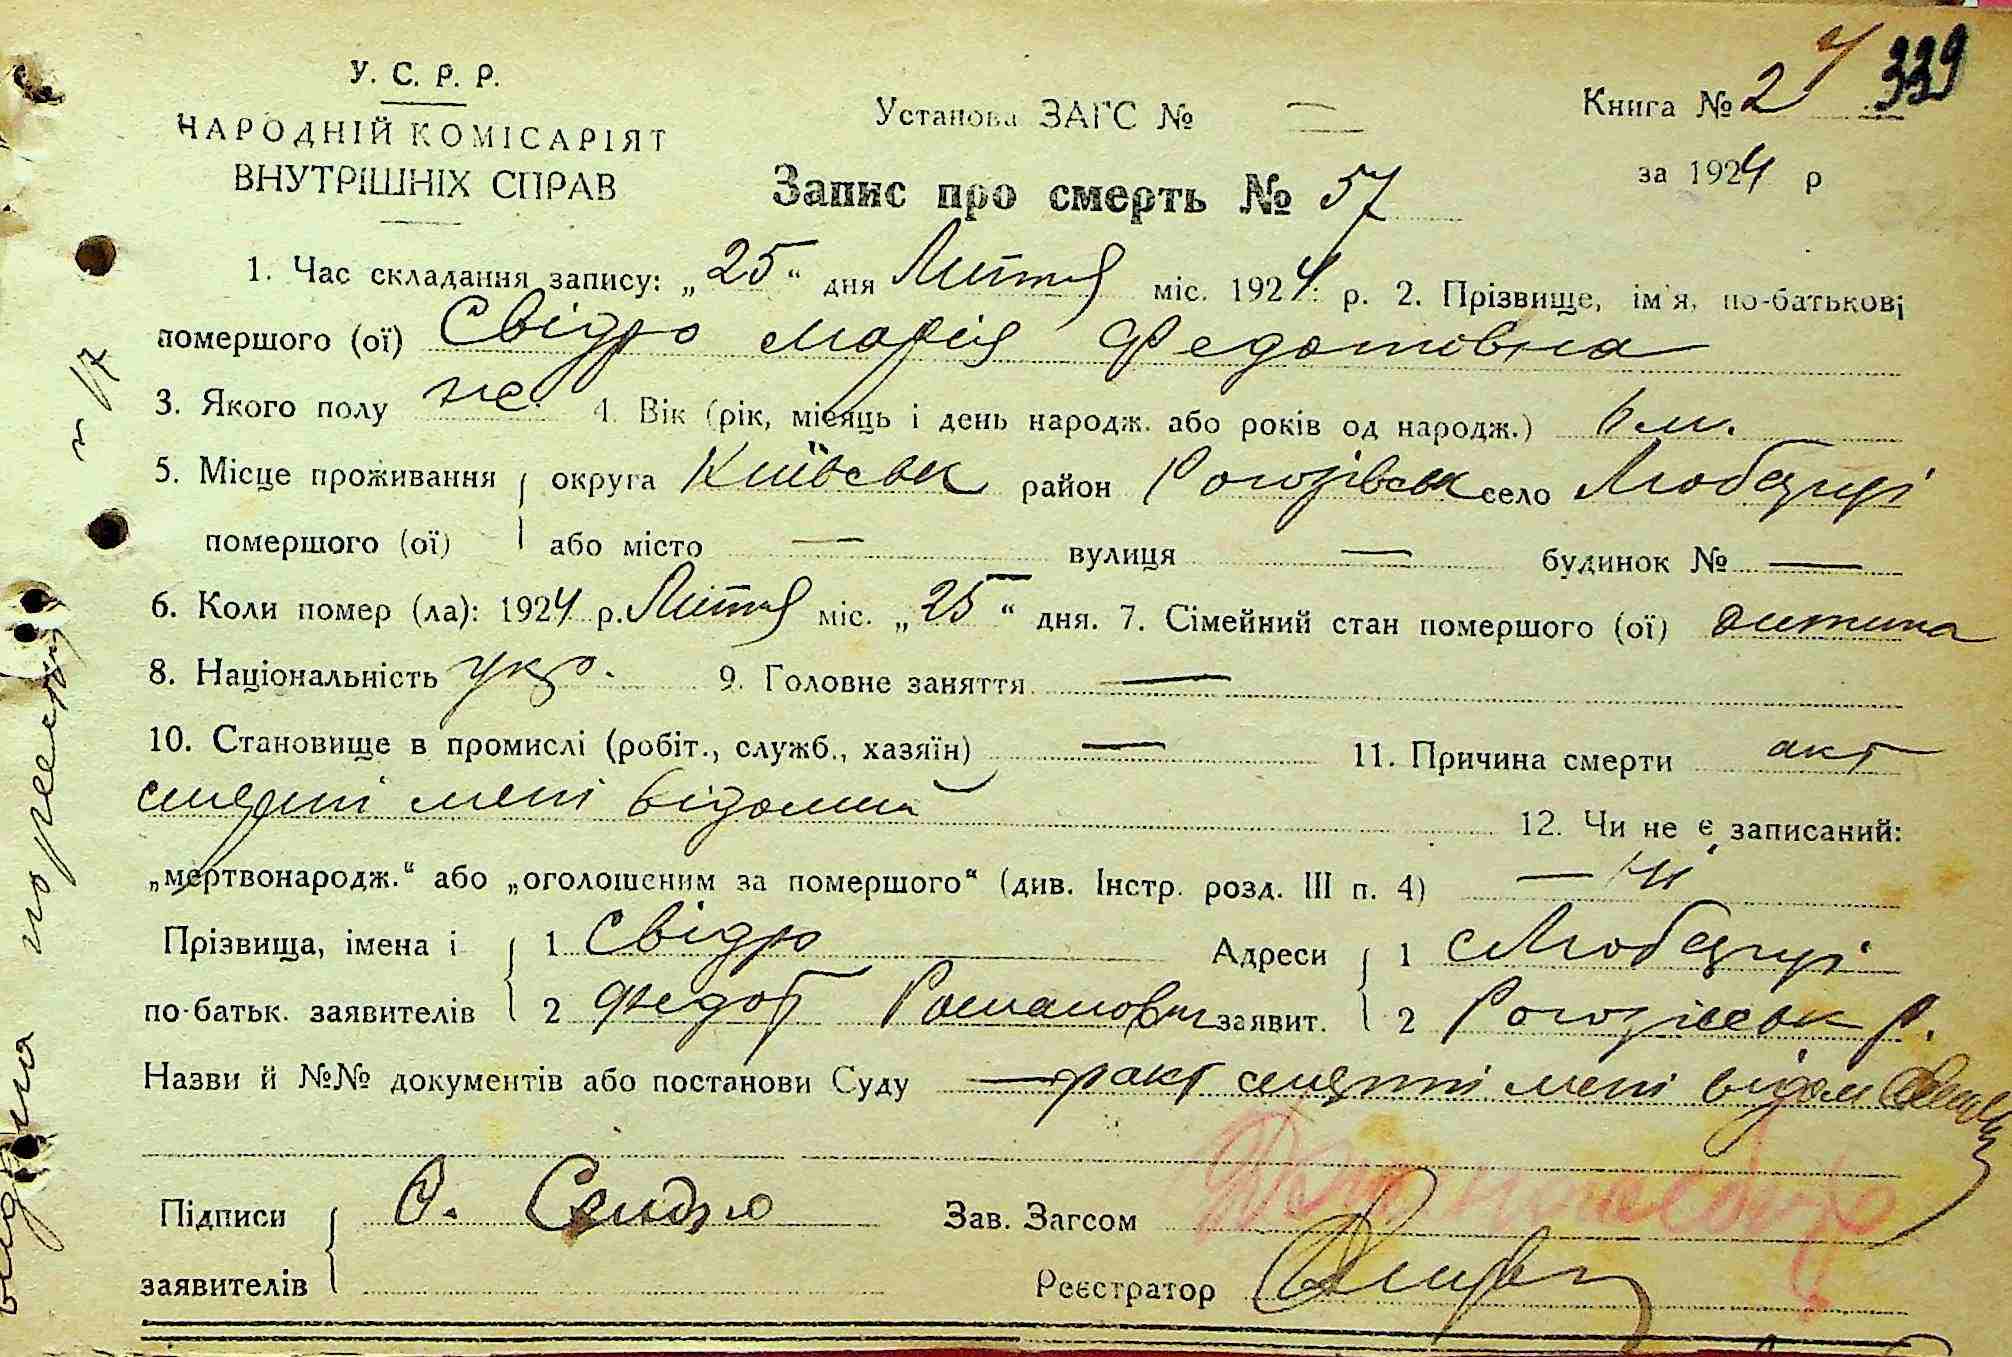 339
У. С. Р. Р.
НАРОДНІЙ КОМІСАРІЯТ
ВНУТРІШНІХ СПРАВ
Установа ЗАГС № —
Книга № 2
за 1924 р
Запис про смерть № 57
1. Час складання запису: „25“ дня Лютня міс. 1924 р. 2. Прізвище, ім'я, по-батькові
помершого (ої) Свідро Марія Федотовна
3. Якого полу ж. 4. Вік (рік, місяць і день народж. або років од народж.) 6 м.
5. Місце проживання округа Київськ район Рогозівськ село Любарці
помершого (ої) або місто — вулиця — будинок № —
6. Коли помер (ла): 1924 р. Лютня міс. „25“ дня. 7. Сімейний стан помершого (ої) дитина
8. Національність укр. 9. Головне заняття —
10. Становище в промислі (робіт., служб., хазяїн) — 11. Причина смерти акт
смерті мені відомий
12. Чи не є записаний:
„мертвонародж.“ або „оголошеним за помершого“ (див. Інстр. розд. III п. 4) — Ні
Прізвища, імена і 1 Свідро Адреси 1 с Любарці
по-батьк. заявителів 2 Федот Романович заявит. 2 Рогозівськ р.
Назви й №№ документів або постанови Суду — факт смерті мені відом
Підписи Ф. Свидро Зав. Загсом
заявителів Реєстратор